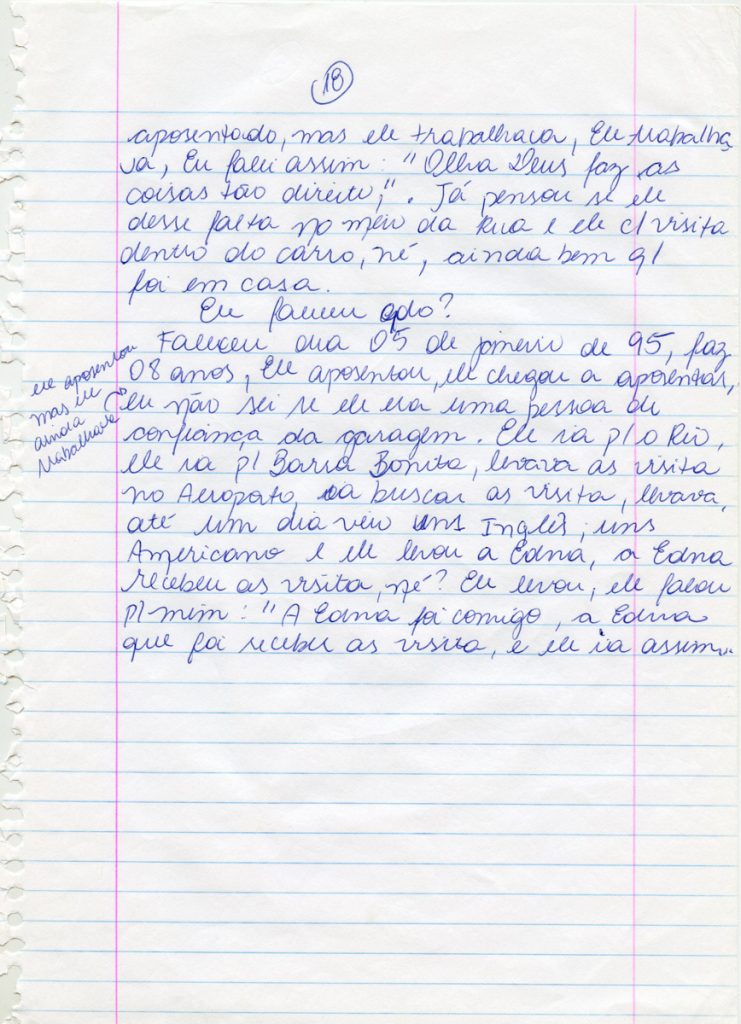 18
aposentado, mas ele trabalhava, Ele trabalha
va, Eu falei assim: "Olha Deus faz as
coisas tão direito,". Já pensou se ele
desse falta no meio da Rua e ele c/ visita
dentro do carro, né, ainda bem q/
foi em casa.
Ele faleceu qdo?
Faleceu dia 05 de janeiro de 95, faz
08 anos, Ele aposentou, ele chegou a aposentar,
ele aposentou
mas ele
ainda
trabalhava
eu não sei se ele era uma pessoa de
confiança da garagem. Ele ia p/ o Rio,
ele ia p/ Barra Bonita, levava as visita
no Aeroporto, ia buscar as visita, levava,
até um dia veio uns Inglês, uns
Americano e ele levou a Edna, a Edna
recebeu as visita, né? Ele levou, ele falou
p/ mim: "A Edna foi comigo, a Edna
que foi receber as visita, e ele ia assim..